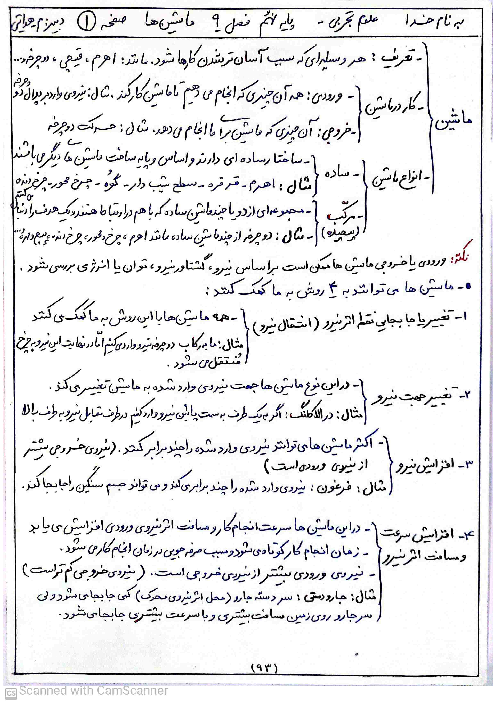 به نام خدا علوم تجربی - پایه نهم فصل ۹ ماشین ها صفحه ۱
ماشین
- تعریف: هر وسیله ای که سبب آسان تر شدن کارها شود. مانند: اهرم، قیچی، دوچرخه...
کار در ماشین
- ورودی: هر آن چیزی که انجام می دهیم تا ماشین کار کند. مثال: نیروی وارد بر پدال دوچرخه
- خروجی: آن چیزی که ماشین برای ما انجام می دهد. مثال: حرکت دوچرخه
انواع ماشین
ساده
- ساختار ساده ای دارند و اساس و پایه ساخت ماشین های دیگر می باشند
مثال: اهرم - قرقره - سطح شیب دار - گوه - چرخ محور - چرخ دنده
مرکب (پیچیده)
- مجموعه ای از دو یا چند ماشین ساده که با هم در ارتباط هستند و یک هدف را دنبال می کنند
- مثال: دوچرخه از چند ماشین ساده، مانند اهرم، چرخ و محور، چرخ دنده، پیچ و مهره...
نکته: ورودی یا خروجی ماشین ها ممکن است بر اساس نیرو، گشتاور نیرو، توان یا انرژی بررسی شود.
- ماشین ها می توانند به ۴ روش به ما کمک کنند:
۱- تغییر یا جابجایی نقطه اثر نیرو (انتقال نیرو)
- همه ماشین ها با این روش به ما کمک می کنند
مثال: ما به رکاب دوچرخه نیرو وارد می کنیم اما در نهایت این نیرو به چرخ
منتقل می شود.
۲- تغییر جهت نیرو
- در این نوع ماشین ها جهت نیروی وارد شده به ماشین تغییر می کند.
مثال: در الاکلنگ: اگر به یک طرف به سمت پایین نیرو وارد کنیم در طرف مقابل نیرو به طرف بالا
۳- افزایش نیرو
- اکثر ماشین ها می توانند نیروی وارد شده را چند برابر کنند. (نیروی خروجی بیشتر
از نیروی ورودی است)
مثال: فرغون: نیروی وارد شده را چند برابر می کند و می تواند جسم سنگین را جابجا کند.
۴- افزایش سرعت
و مسافت اثر نیرو
- در این ماشین ها سرعت انجام کار و مسافت اثر نیروی ورودی افزایش می یابد
- زمان انجام کار کوتاه می شود و سبب صرفه جویی در زمان انجام کار می شود.
- نیروی ورودی بیشتر از نیروی خروجی است. (نیروی خروجی کم تر است)
مثال: جارو دستی: سر دسته جارو (محل اثر نیروی محرک) کمی جابجا می شود ولی
سر جارو روی زمین مسافت بیشتری و با سرعت بیشتری جابجا می شود.
(۹۳)
CS Scanned with CamScanner